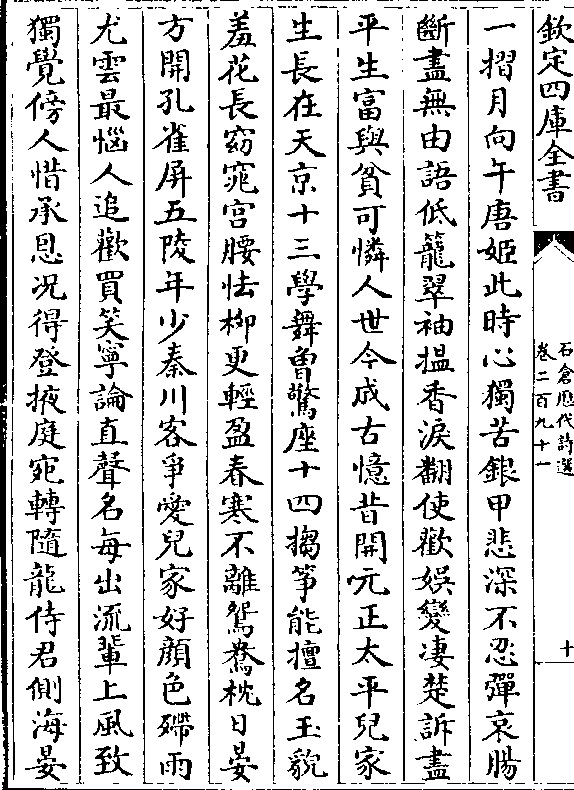 欽定四庫全書
石倉歷代詩選
卷二百九十一
十
一摺月向午唐姬此時心獨苦銀甲悲深不忍彈哀腸
斷盡無由語低籠翠袖揾香淚翻使歡娛變凄楚訴盡
平生富與貧可憐人世今成古憶昔開元正太平兒家
生長在天京十三學舞曾驚座十四搊筝能擅名玉貌
羞花長窈窕宫腰怯柳更輕盈春寒不離鴛鴦枕日晏
方開孔雀屏五陵年少秦川客爭愛兒家好顔色殢雨
尤雲最惱人追歡買笑寧論直聲名每出流輩上風致
獨覺傍人惜承恩况得登掖庭宛轉隨龍侍君側海晏